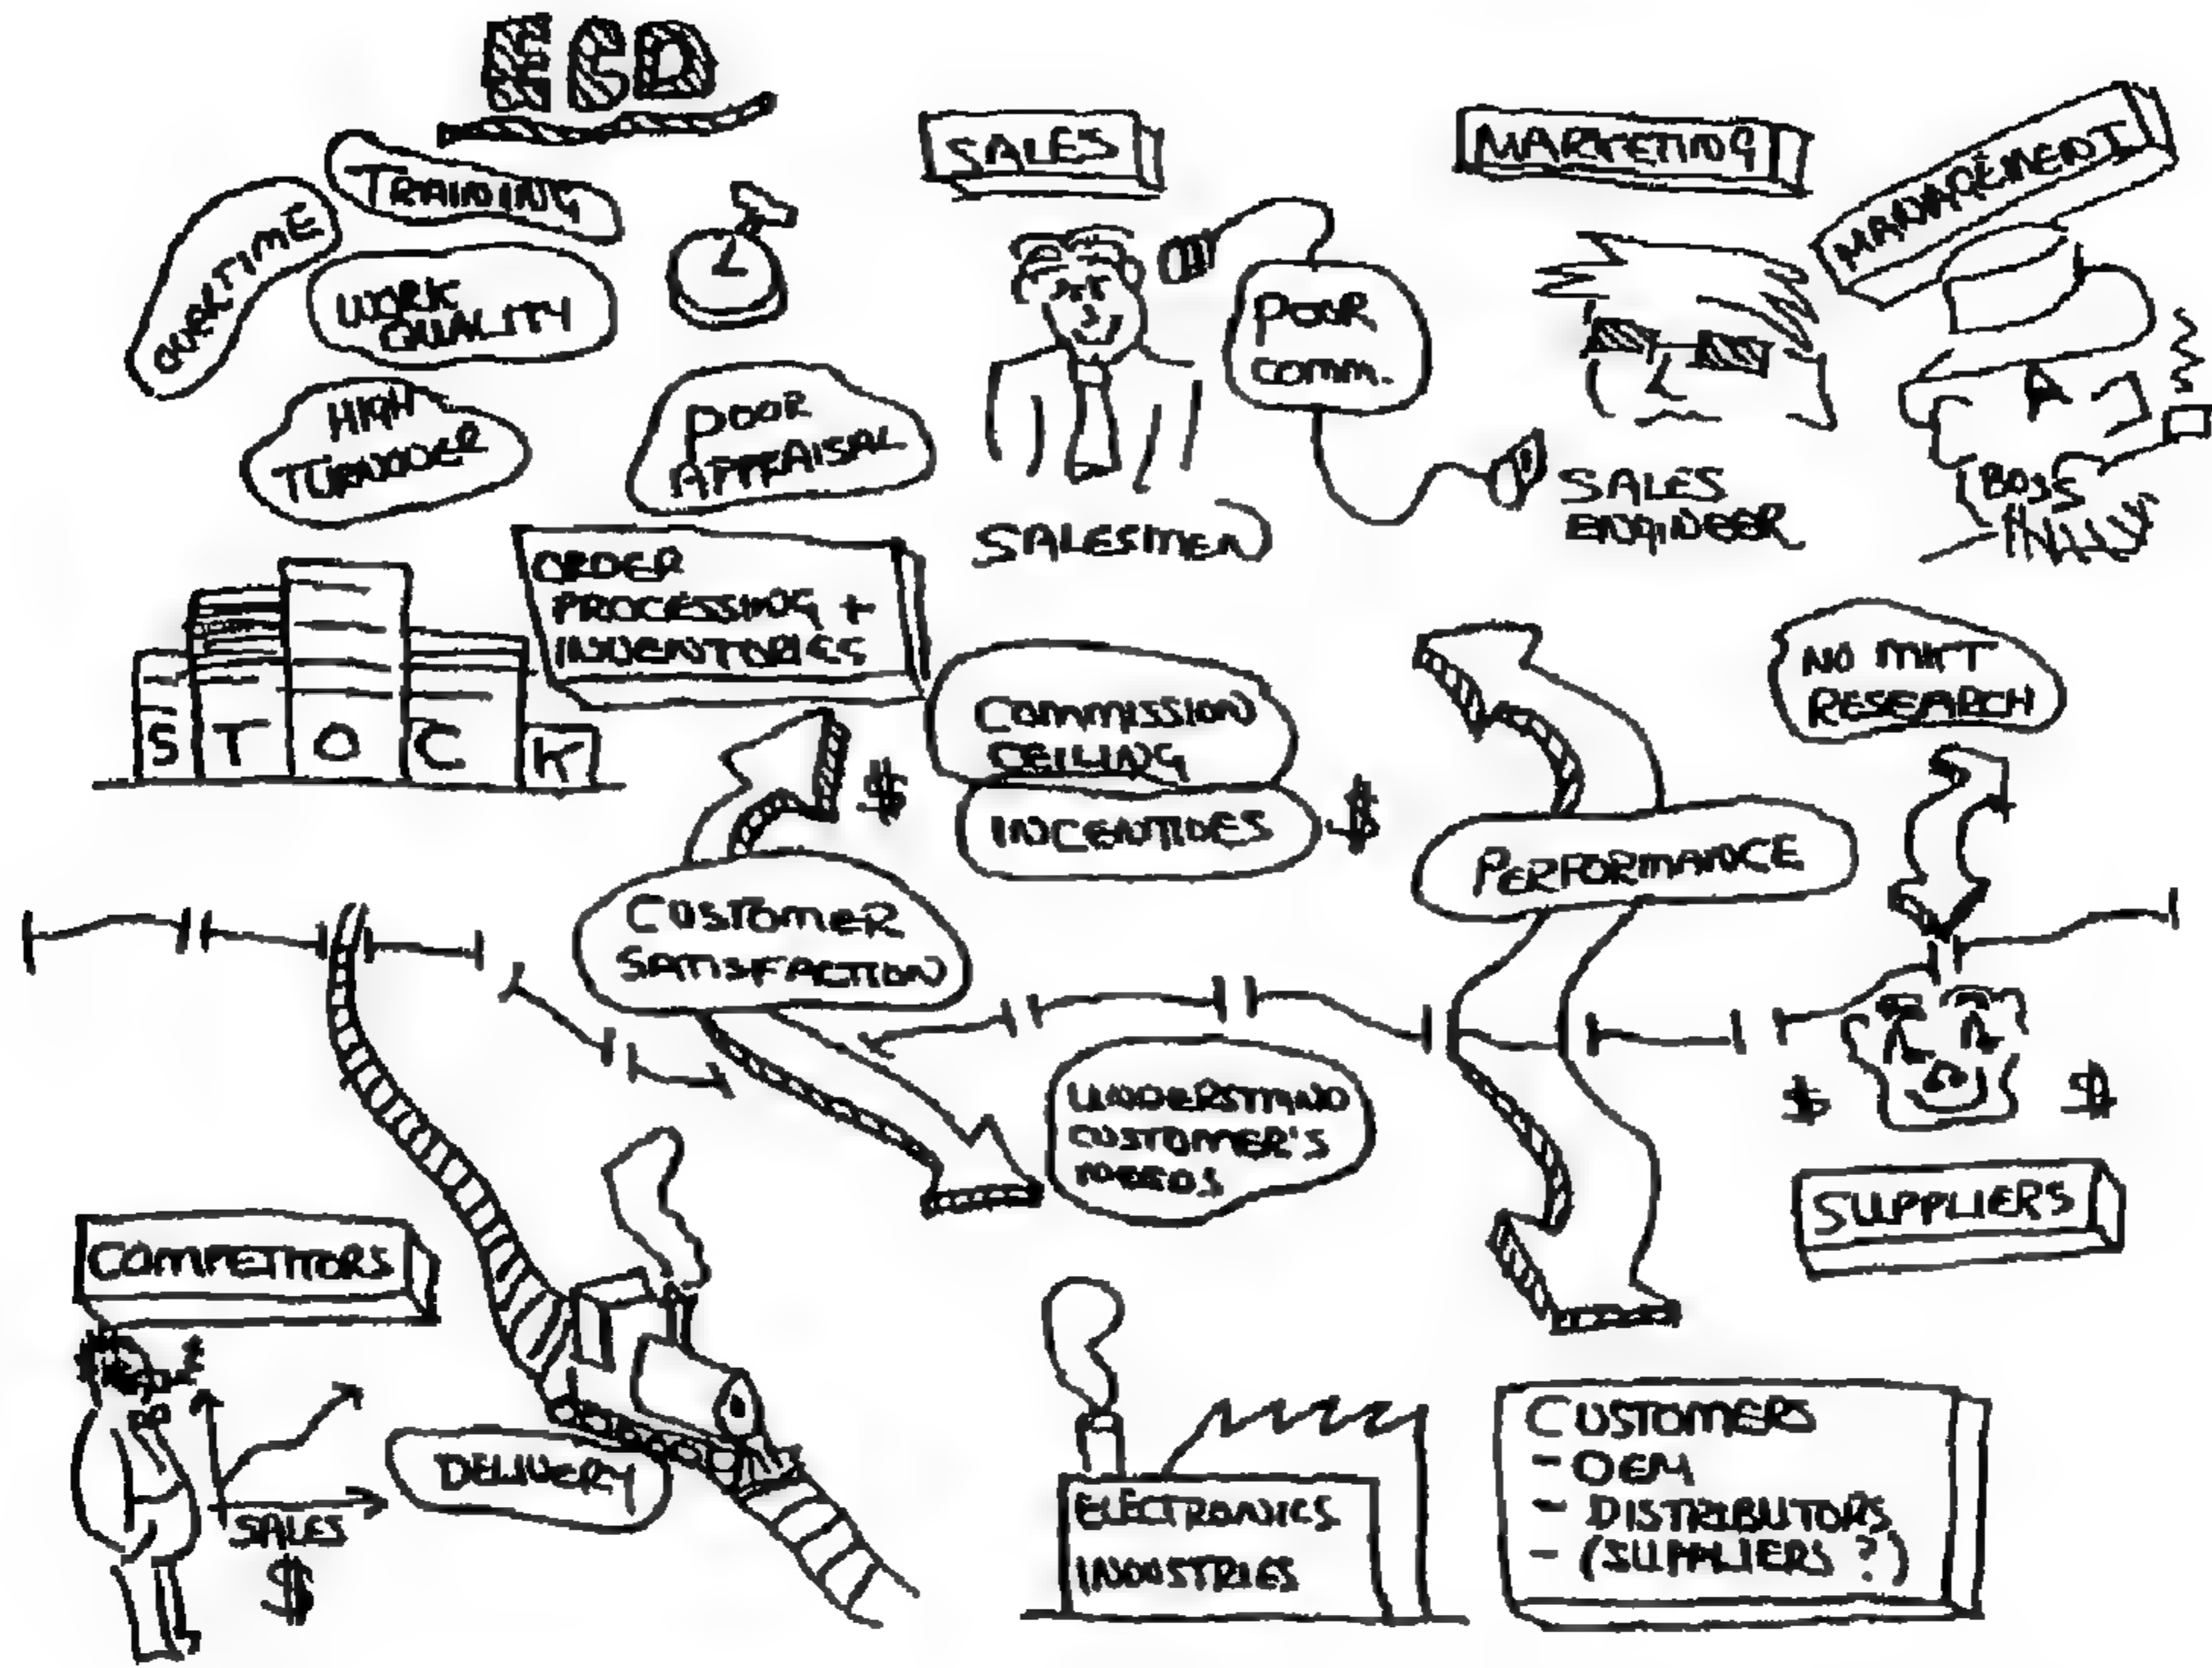 ECD
SALES
MARKETING
MANAGEMENT
TRAINING
OVERTIME
WORK
QUALITY
POOR
COMM.
HIGH
TURNOVER
POOR
APPRAISAL
SALESMEN
SALES
ENGINEER
BOSS
ORDER
PROCESSING +
INVENTORIES
STOCK
COMMISSION
CEILING
$
INCENTIVES
$
NO MKT
RESEARCH
PERFORMANCE
CUSTOMER
SATISFACTION
UNDERSTAND
CUSTOMER'S
NEEDS
$
$
SUPPLIERS
COMPETITORS
SALES
$
DELIVERY
ELECTRONICS
INDUSTRIES
CUSTOMERS
- OEM
- DISTRIBUTORS
- (SUPPLIERS ?)